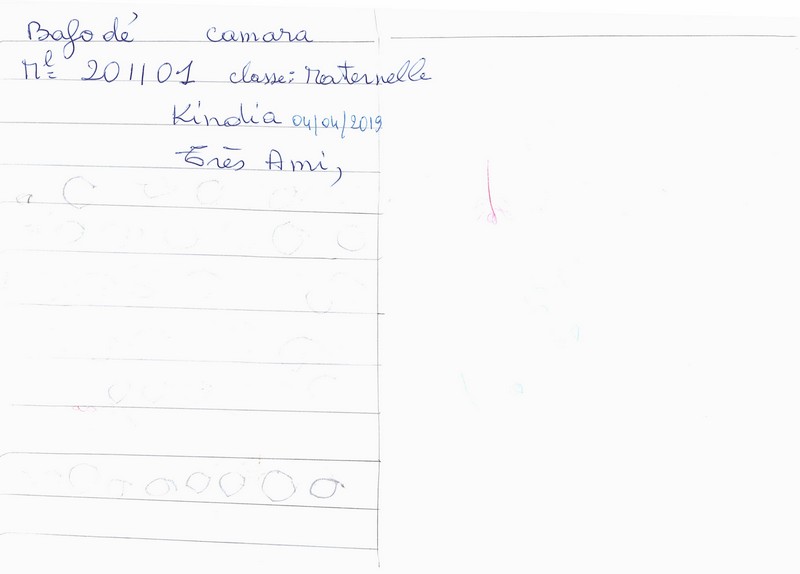 Bafodé camara
Nº 201101 classe: Maternelle
Kindia 04/04/2019
Très Ami,